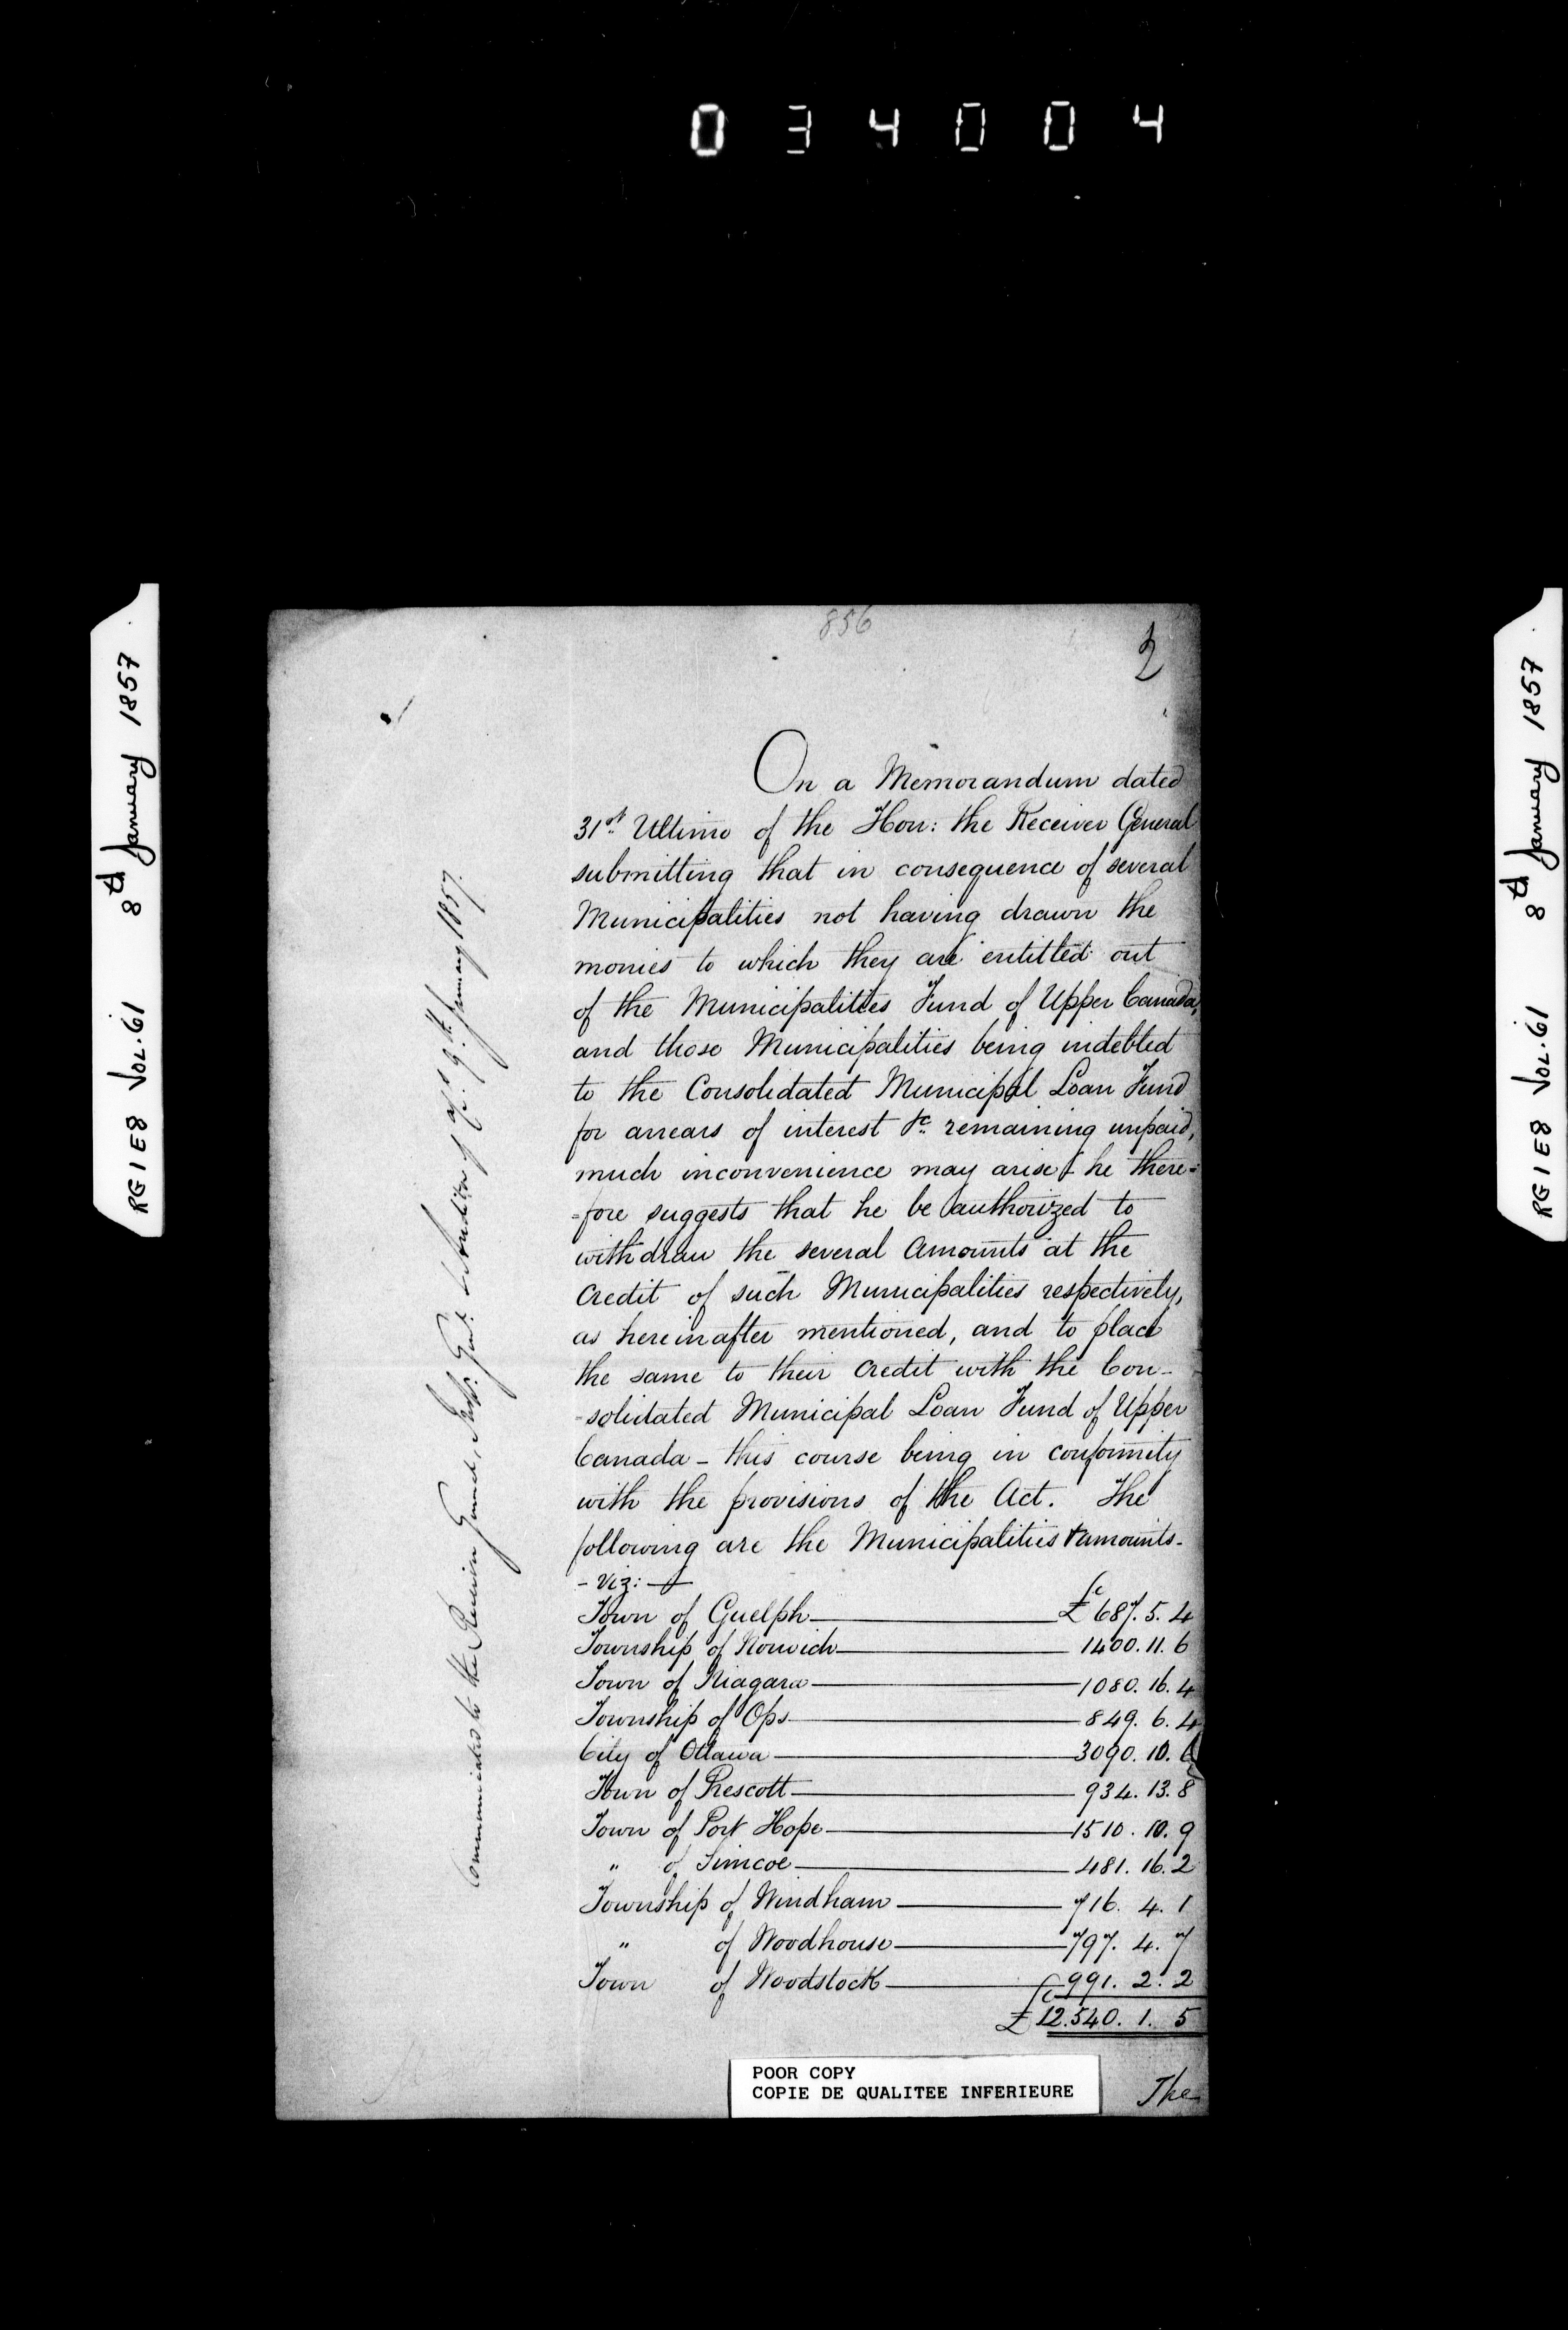 034004
RG1E8 VOL.61 8th January 1857
RG1E8 VOL.61 8th January 1857
856
2
On a Memorandum dated
31st Ultimo of the Hon: the Receiver General
submitting that in consequence of several
Municipalities not having drawn the
monies to which they are entitled out
of the Municipalities Fund of Upper Canada,
and those Municipalities being indebted
to the Consolidated Municipal Loan Fund
for arrears of interest &c. remaining unpaid,
much inconvenience may arise & he there=
=fore suggests that he be authorized to
withdraw the several Amounts at the
Credit of such Municipalities respectively,
as hereinafter mentioned, and to place
the same to their Credit with the Con-
-solidated Municipal Loan Fund of Upper
Canada - this course being in conformity
with the provisions of the Act. The
following are the Municipalities & amounts-
- Viz:-
Town of Guelph £687.5.4
Township of Norwich 1400.11.6
Town of Niagara 1080.16.4
Township of Ops 849.6.4
City of Ottawa 3090.10.6
Town of Prescott 934.13.8
Town of Port Hope 1510.10.9
" of Simcoe 481.16.2
Township of Windham 716.4.1
" of Woodhouse 797.4.7
Town of Woodstock 991.2.2
£12.540.1.5
The
Communicated to the Receiver General, Insp. Genl. & Auditor of a/cs. 9th January 1857.
POOR COPY
COPIE DE QUALITEE INFERIEURE